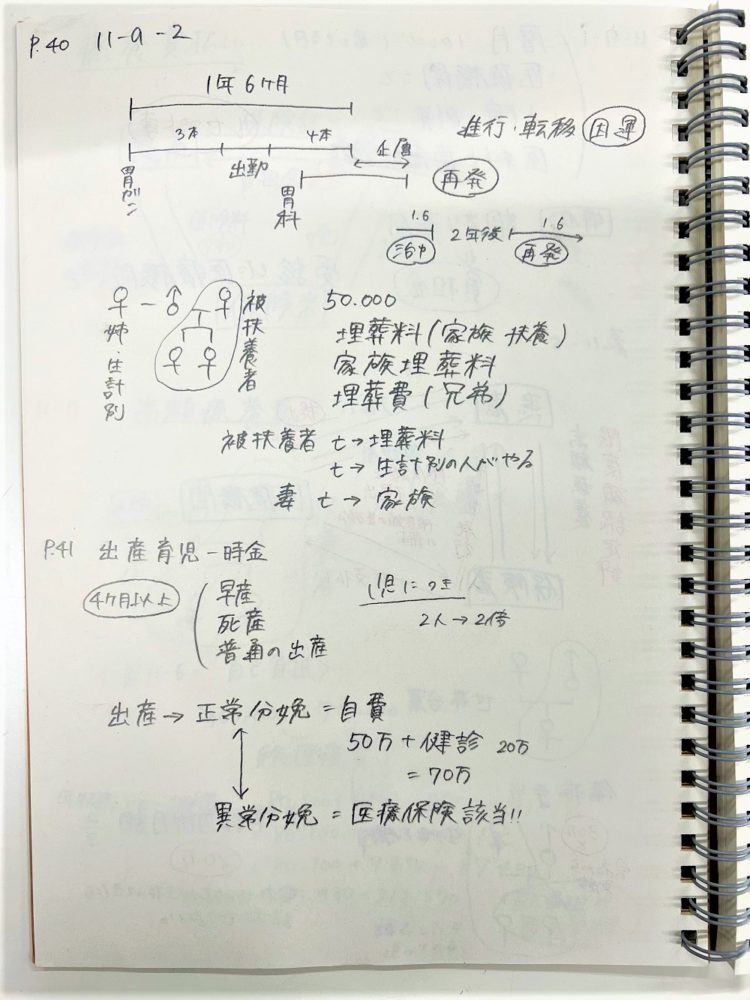 P.40 11-a-2
1年6ヶ月
3本 4本
出勤
胃ガン
胃科
進行・転移 因運
再発
1.6 2年後 1.6
治ゆ 再発
♀-♂ ♀
♀ ♀
姉・生計別
被扶養者
50.000
埋葬料(家族 扶養)
家族埋葬料
埋葬費(兄弟)
被扶養者 t→埋葬料
t→生計別の人がやる
妻 t→ 家族
P.41 出産育児一時金
4ヶ月以上
早産
死産
普通の出産
1児につき
2人→2倍
出産→正常分娩=自費
50万+健診 20万
=70万
異常分娩=医療保険該当!!